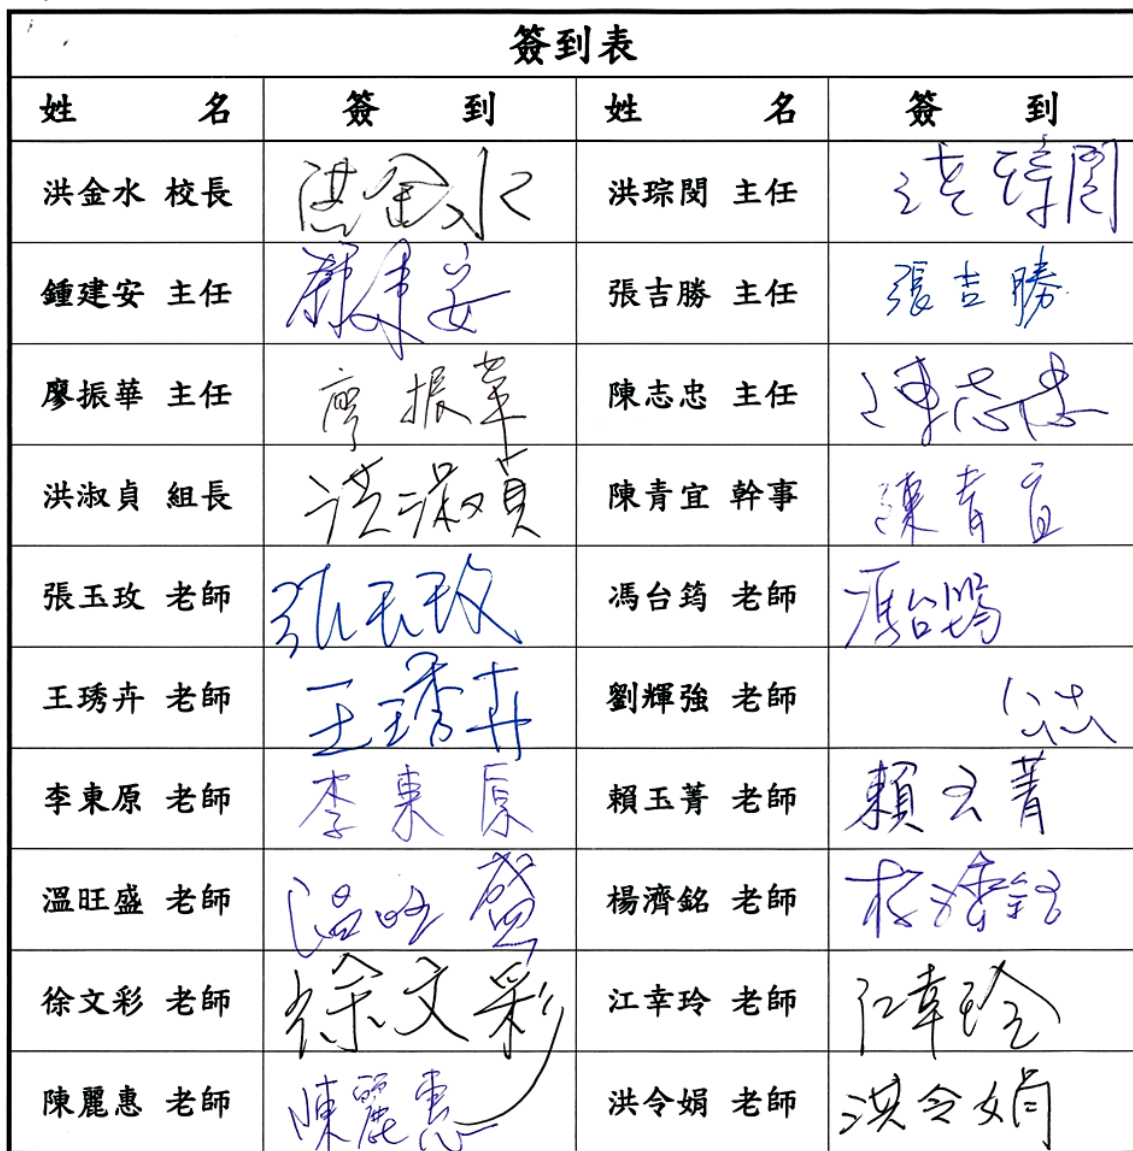 簽到表
姓名 簽到 姓名 簽到
洪金水 校長 洪金水 洪琮閔 主任 洪琮閔
鍾建安 主任 鍾建安 張吉勝 主任 張吉勝
廖振華 主任 廖振華 陳志忠 主任 陳志忠
洪淑貞 組長 洪淑貞 陳青宜 幹事 陳青宜
張玉玫 老師 張玉玫 馮台筠 老師 馮台筠
王琇卉 老師 王琇卉 劉輝強 老師
李東原 老師 李東原 賴玉菁 老師 賴玉菁
溫旺盛 老師 溫旺盛 楊濟銘 老師 楊濟銘
徐文彩 老師 徐文彩 江幸玲 老師 江幸玲
陳麗惠 老師 陳麗惠 洪令娟 老師 洪令娟